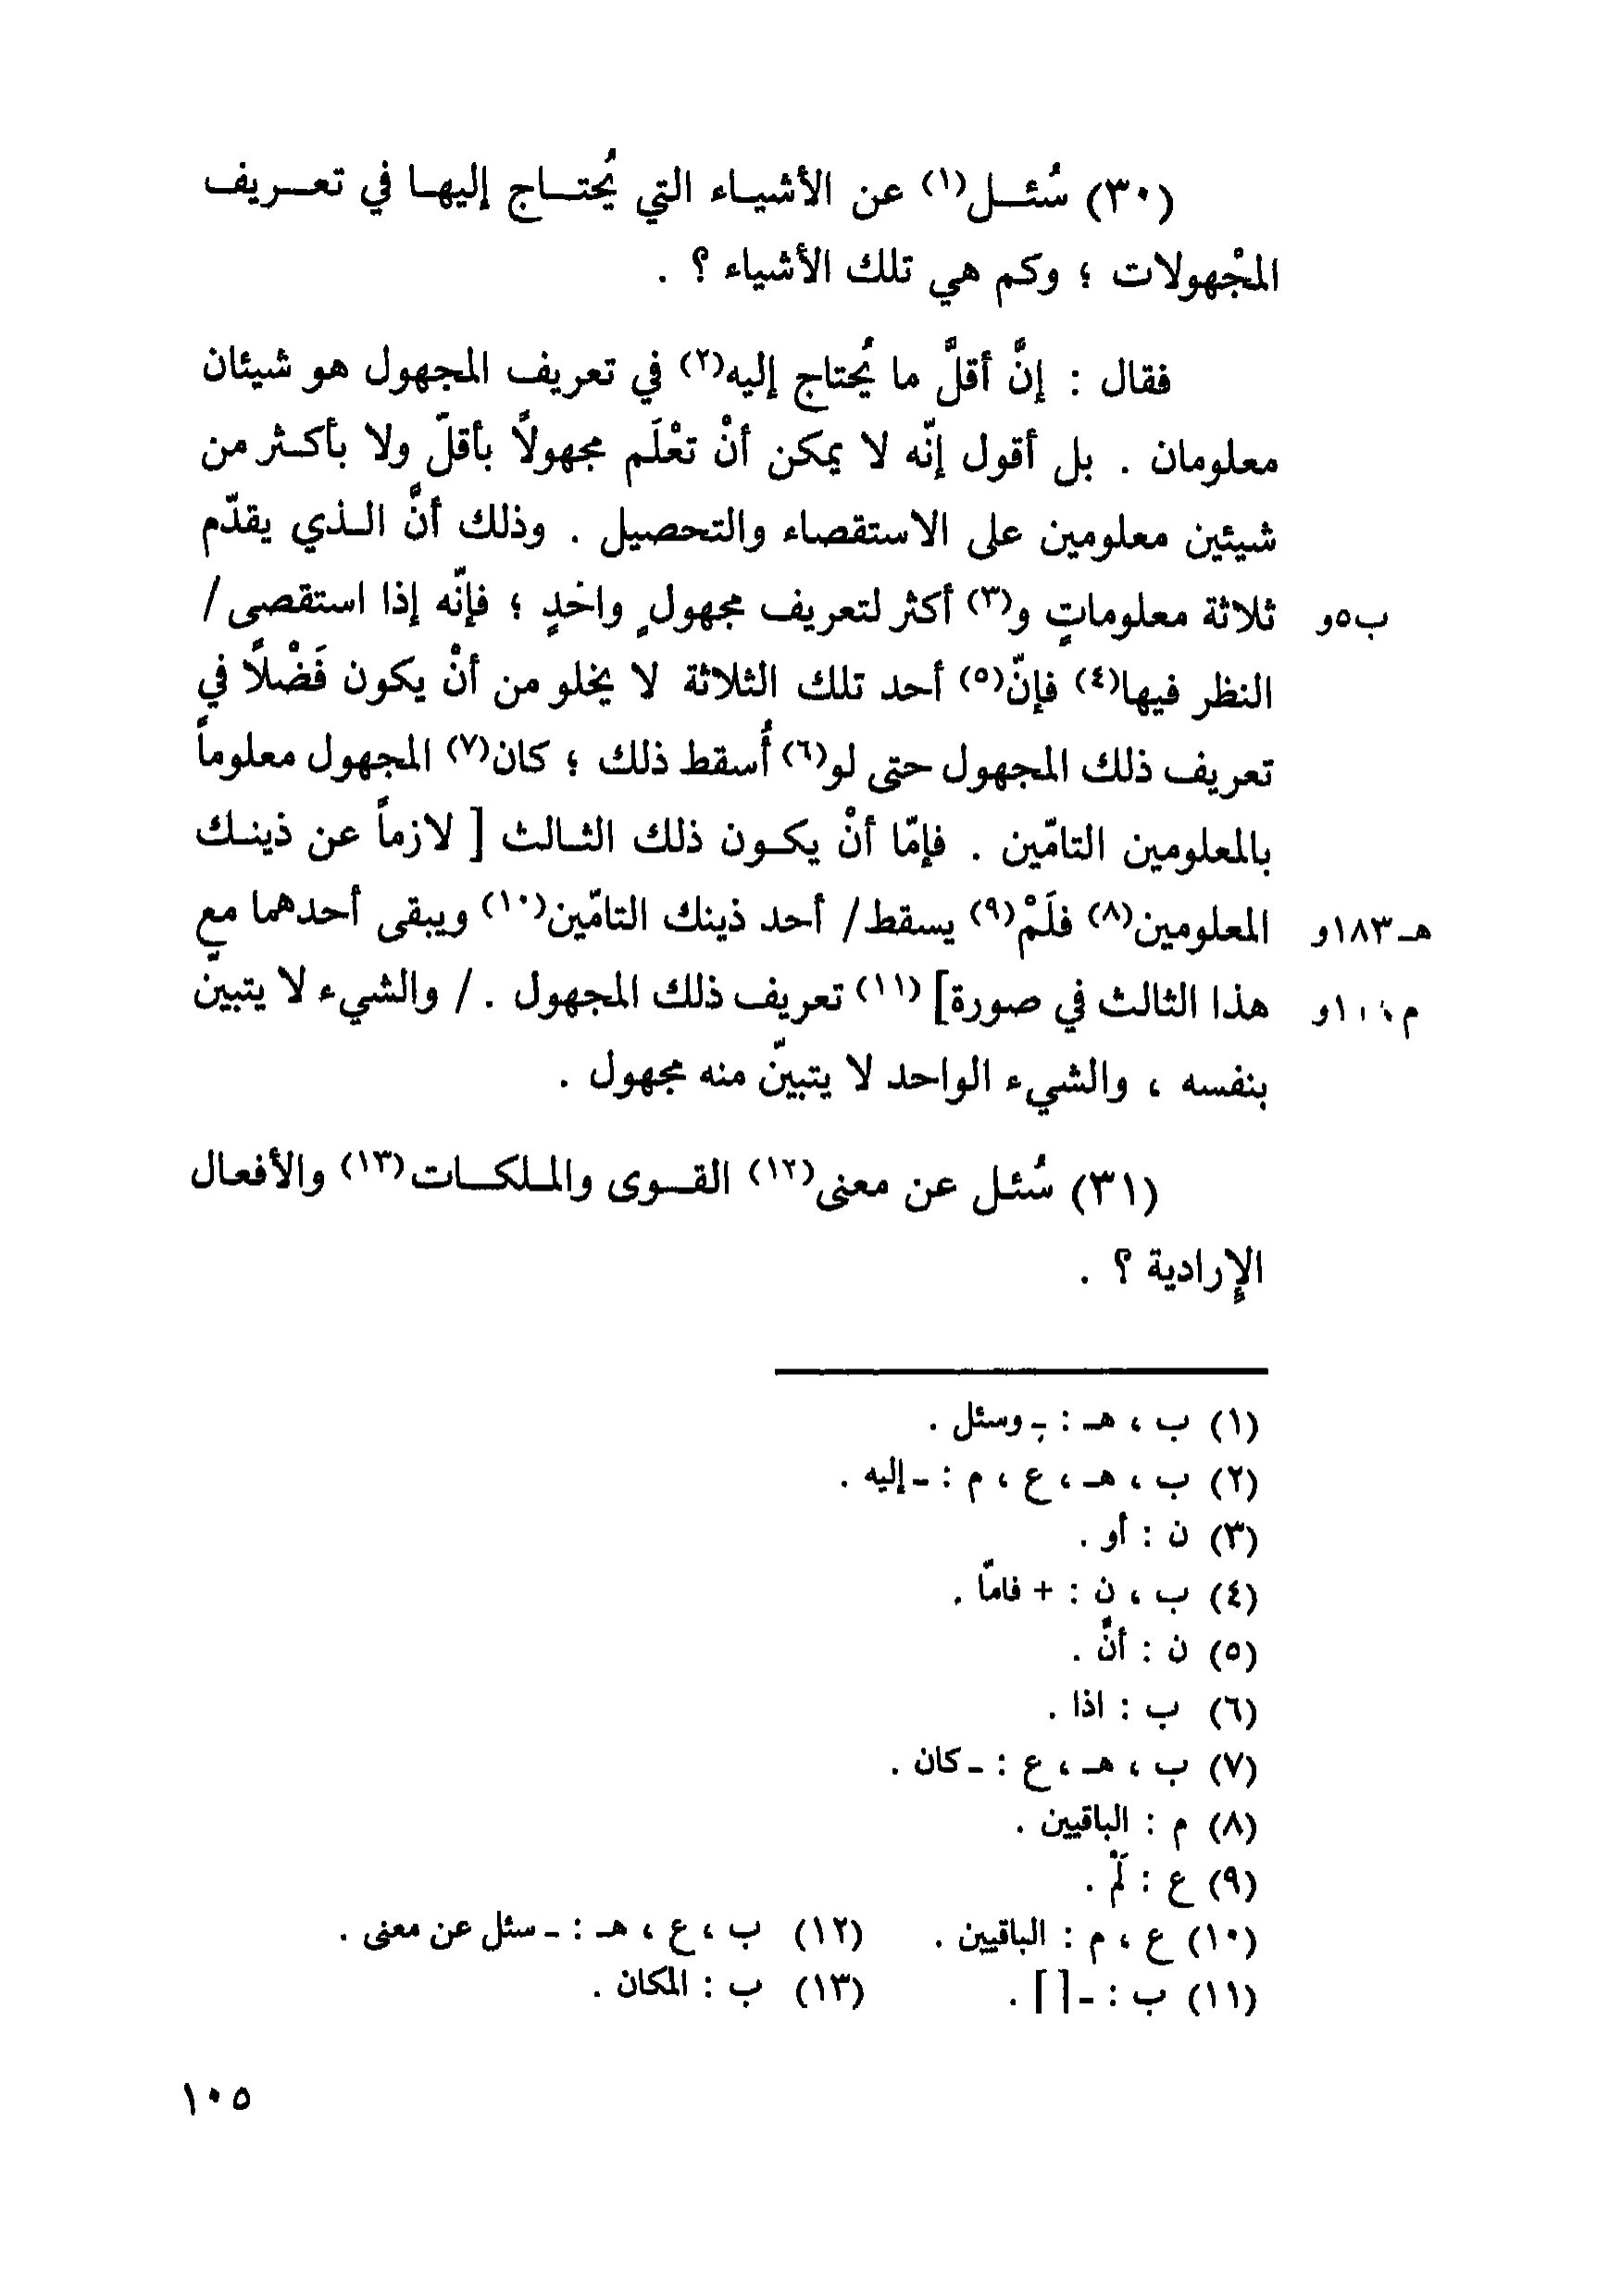 (٣٠) سُئــل(١) عن الأشيـاء التي يُحتــاج إليهـا في تعــريف
المجْهولات ؛ وكم هي تلك الأشياء ؟ .
فقال : إنَّ أقلَّ ما يُحتاج إليه(٢) في تعريف المجهول هو شيئان
معلومان . بل أقول إنّه لا يمكن أنْ تعْلَم مجهولاً بأقلّ ولا بأكـثر من
شيئين معلومين على الاستقصاء والتحصيل . وذلك أنَّ الـذي يقدّم
ب٥و ثلاثة معلوماتٍ و(٣) أكثر لتعريف مجهولٍ واحدٍ ؛ فإنّه إذا استقصى /
النظر فيها(٤) فإنّ(٥) أحد تلك الثلاثة لا يخلو من أنْ يكون فَضْلاً في
تعريف ذلك المجهول حتى لو(٦) أُسقط ذلك ؛ كان(٧) المجهول معلوماً
بالمعلومين التامّين . فإمّا أنْ يكـون ذلك الثـالث [ لازماً عن ذينـك
هـ١٨٣و المعلومين(٨) فلَمْ(٩) يسقط/ أحد ذينك التامّين(١٠) ويبقى أحدهما مع
هذا الثالث في صورة] (١١) تعريف ذلك المجهول . / والشيء لا يتبينّ
بنفسه ، والشيء الواحد لا يتبينّ منه مجهول .
(٣١) سُئـل عن معنى(١٢) القــوى والملـكــات(١٣) والأفعـال
الإرادية ؟ .
(١) ب ، هـ : ـ وسئل .
(٢) ب ، هـ ، ع ، م : ـ إليه .
(٣) ن : أو .
(٤) ب ، ن : + فامّا .
(٥) ن : أنَّ .
(٦) ب : اذا .
(٧) ب ، هـ ، ع : ـ كان .
(٨) م : الباقيين .
(٩) ع : لَمْ .
(١٠) ع ، م : الباقيين . (١٢) ب ، ع ، هـ : ـ سئل عن معنى .
(١١) ب : ـ [ ] . (١٣) ب : المكان .
١٠٥